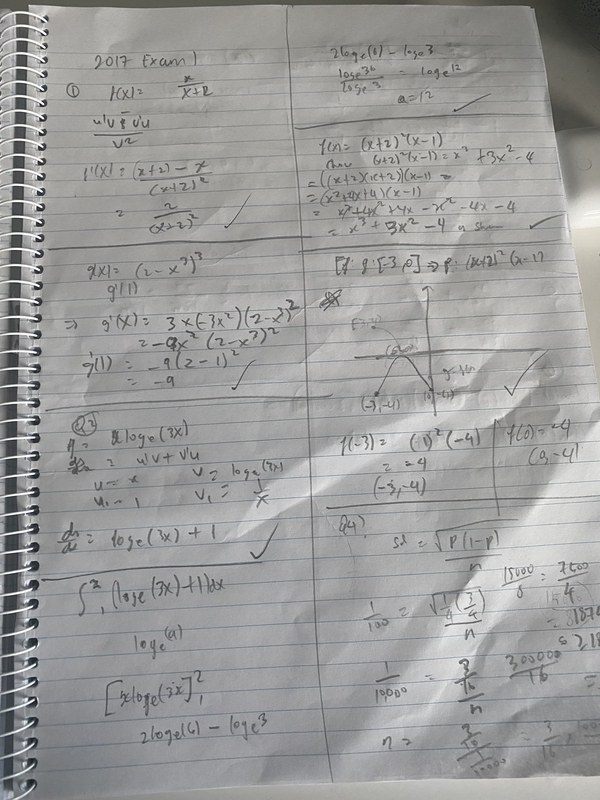 2017 Exam 1
① f(x) = x/(x+2)
u'v - v'u
v²
f'(x) = (x+2) - x
(x+2)²
= 2
(x+2)²
g(x) = (2-x³)³
g'(1)
⇒ g'(x) = 3×(-3x²)(2-x³)²
= -9x²(2-x³)²
g'(1) = -9(2-1)²
= -9
Q2
y = xloge(3x)
= u'v + v'u
u = x v = loge(3x)
u' = 1 v' = 1/x
dy/dx = loge(3x) + 1
∫₁² (loge(3x)+1)dx
loge(a)
[xloge(3x)]₁²
2loge(6) - loge3
2loge(6) - loge3
loge36
loge3
= loge12
a=12
f(x) = (x+2)²(x-1)
(x+2)²(x-1) = x³ + 3x² - 4
= ((x+2)(x+2))(x-1)
= (x²+4x+4)(x-1)
= x³+4x²+4x-x²-4x-4
= x³+3x²-4
(-3,-4)
f(-3) = (1)²(-4)
= -4
(-3,-4)
f(0) = -4
(0,-4)
Q4)
sd = √p(1-p)
n
1/100 = √1/4(3/4)
n
1/10000 = 3/16
n
300000
16
n =